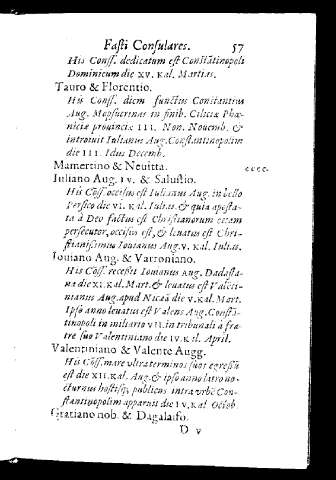 Fasti Consulares. 57
His Conss. dedicatum est Constãtinopoli
Dominicum die XV. Kal. Martias.
Tauro & Florentio.
His Conss. diem functus Constantius
Aug. Mopsucrenis in finib. Ciliciæ Phœ-
niciæ prouinciæ III. Non. Nouemb. &
introiuit Iulianus Aug. Constantinopolim
die III. Idus Decemb.
Mamertino & Neuitta. cccc.
Iuliano Aug. IV. & Salustio.
His Coss. occisus est Iulianus Aug. in bello
Persico die VI. Kal. Iulias. & quia aposta-
ta à Deo factus est Christianorum etiam
persecutor, occisus est, & leuatus est Chri-
stianissimus Iouianus Aug. V. Kal. Iulias.
Iouiano Aug. & Varroniano.
His Coss. recessit Iouianus Aug. Dadasta-
na die XI. Kal. Mart. & leuatus est Valeti-
nianus Aug. apud Nicæã die V. Kal. Mart.
Ipso anno leuatus est Valens Aug. Constã-
tinopoli in miliario VII. in tribunali à fra-
tre suo Valentiniano die IV. Kal. April.
Valentiniano & Valente Augg.
His Coss. mare vltra terminos suos egressũ
est die XII. Kal. Aug. & ipso anno latro no-
cturnus hostisq; publicus intra vrbē Con-
stantinopolim apparuit die IV. Kal. Octob.
Gratiano nob. & Dagalaifo.
D v